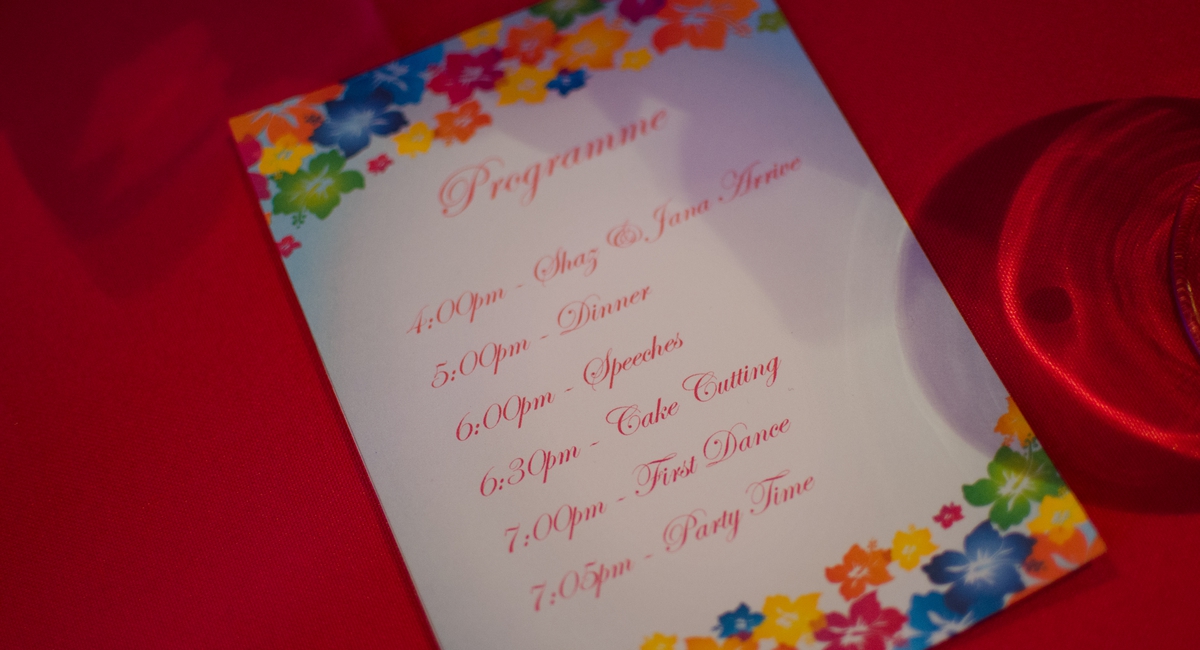 Programme
4:00pm - Shaz & Jana Arrive
5:00pm - Dinner
6:00pm - Speeches
6:30pm - Cake Cutting
7:00pm - First Dance
7:05pm - Party Time